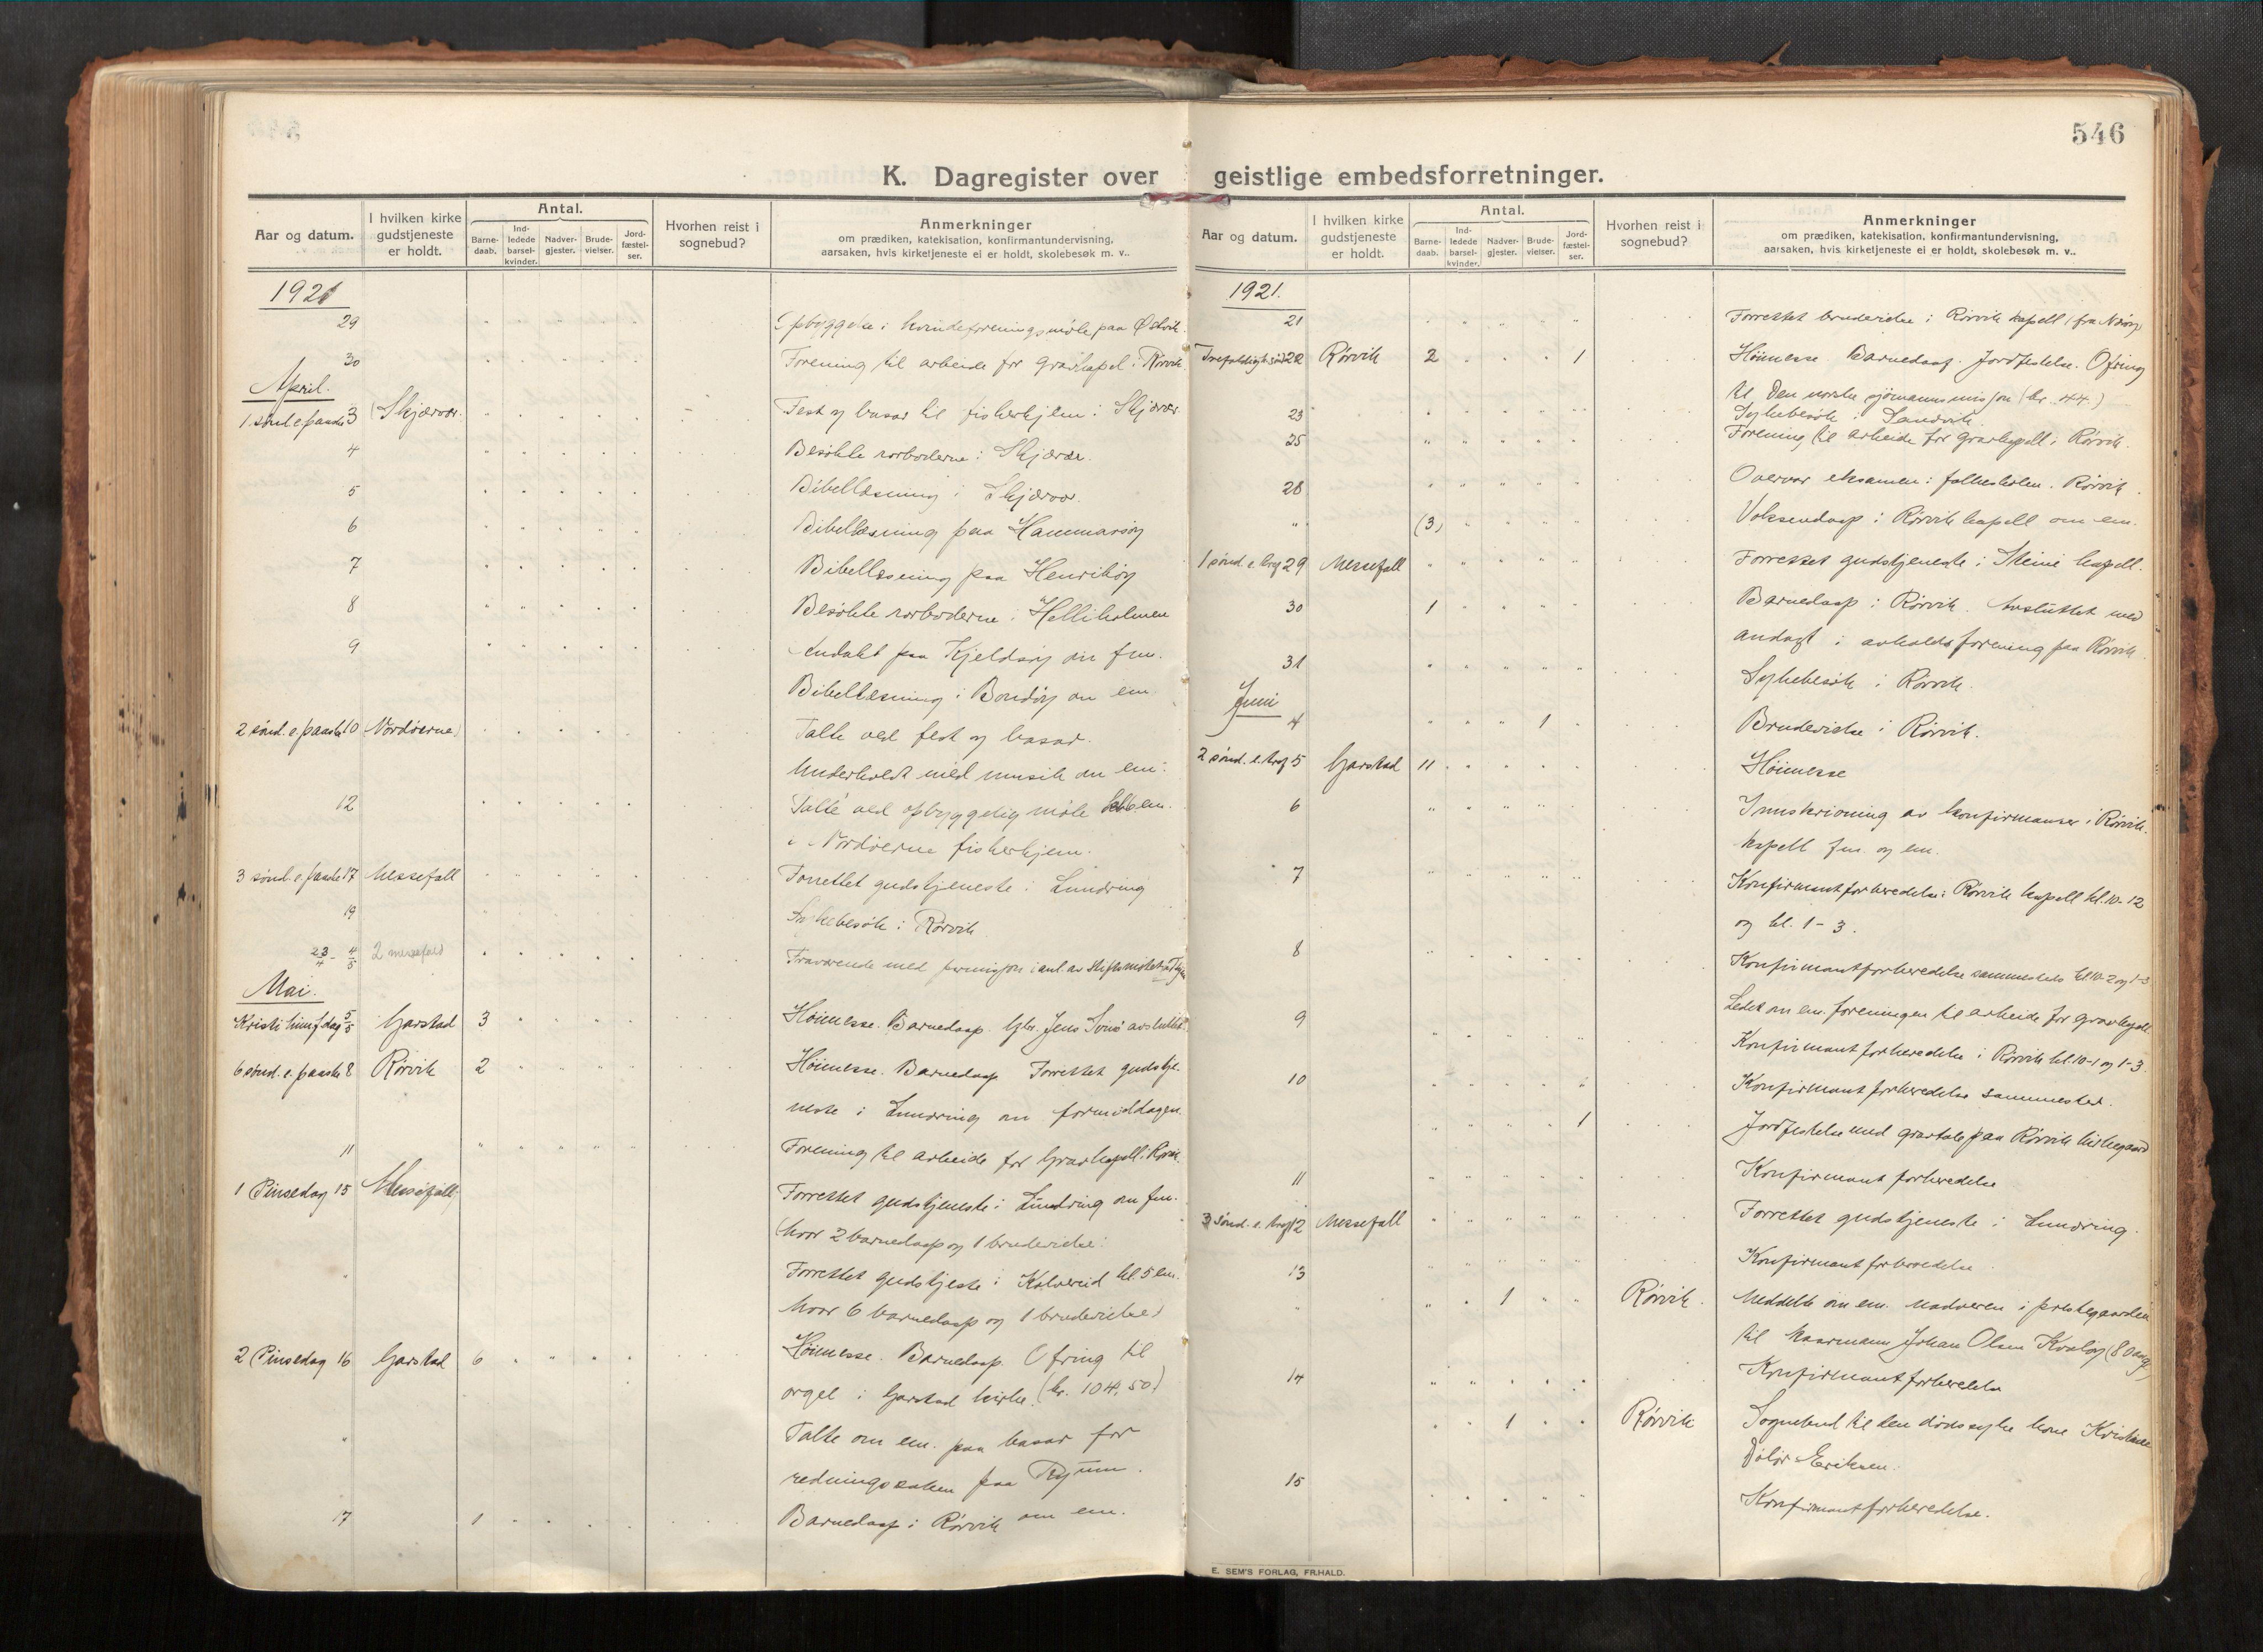 546
K. Dagregister over geistlige embedsforretninger.
Aar og datum.
I hvilken kirke gudstjeneste er holdt.
Antal.
Barne-daab.
Ind-ledede barsel-kvinder.
Nadver-gjester.
Brude-vielser.
Jord-fæstel-ser.
Hvorhen reist i sognebud?
Anmerkninger
om prædiken, katekisation, konfirmantundervisning,
aarsaken, hvis kirketjeneste ei er holdt, skolebesøk m. v..
1921
29 Opbyggelse i kvindeforeningsmøte paa Østvik.
30 Forening til arbeide for gravkapel i Rørvik.
April.
1 sønd e paaske 3 Skjærvær. Fest og basar til fiskerhjem i Skjærvær
4 Besøkte rorboderne i Skjærvær.
5 Bibellæsning i Skjærvær.
6 Bibellæsning paa Hammarøy
7 Bibellæsning paa Henrikøy
8 Besøkte rorboderne i Helliholmen
9 Andakt paa Kjeldøy om fm.
Bibellæsning i Bondøy om em.
2 sønd. e. paaske 10 Nordøerne Talte ved fest og basar.
Underholdt med musik om em.
12 Talte ved opbyggelig møte kl 6 em.
i Nordøerne fiskerhjem.
3 sønd. e. paaske 17 Messefall Forrettet gudstjeneste i Lundring
19 Sykebesøk i Rørvik
23/4 - 4/5 2 messefald Fraværende med permisjon i anl. av stiftsmøtet
Mai.
Kristi himf dag 5/5 Garstad 3 Høimesse. Barnedaap. Gbr. Jens Svinø avsluttet.
6 sønd. e. paaske 8 Rørvik 2 Høimesse. Barnedaap Forrettet gudstje-
neste i Lundring om formiddagen.
11 Forening til arbeide for Gravkapell i Rørvik.
1 Pinsedag 15 Messefall Forrettet gudstjeneste i Lundring om fm.
(hvor 2 barnedaap og 1 brudevielse.
Forrettet gudstjeste i Kolvereid kl. 5 em.
hvor 6 barnedaap og 1 brudevielse)
2 Pinsedag 16 Garstad 6 Høimesse. Barnedaap. Ofring til
orgel i Garstad kirke. (kr. 104,50)
Talte om em. paa basar for
redningssaken paa Ryum.
17 1 Barnedaap i Rørvik om em.
Aar og datum.
I hvilken kirke gudstjeneste er holdt.
Antal.
Barne-daab.
Ind-ledede barsel-kvinder.
Nadver-gjester.
Brude-vielser.
Jord-fæstel-ser.
Hvorhen reist i sognebud?
Anmerkninger
om prædiken, katekisation, konfirmantundervisning,
aarsaken, hvis kirketjeneste ei er holdt, skolebesøk m. v..
1921.
21 Forrettet brudevielse i Rørvik kapell (fra Nærøy)
Trefoldighetssønd 22 Rørvik 2 1 Høimesse. Barnedaap. Jordfestelse. Ofring
til Den norske sjømannsmisjon (kr. 44.)
23 Sykebesøk i Sandvik.
25 Forening til arbeide for gravkapell i Rørvik.
28 Overvar eksamen i folkeskolen. Rørvik.
" (3) Voksendaap i Rørvik kapell om em.
1 sønd. e. tref 29 Messefall Forrettet gudstjeneste i Steine kapell.
30 1 Barnedaap i Rørvik. Avsluttet med
andagt i avholdsforening paa Rørvik.
31 Sykebesøk i Rørvik.
Juni
4 1 Brudevielse i Rørvik.
2 sønd. e. tref 5 Garstad 11 Høimesse
6 Innskrivning av konfirmanter i Rørvik
kapell fm. og em.
7 Konfirmantforberedelse i Rørvik kapell kl. 10-12
og kl. 1-3.
8 Konfirmantforberedelse sammesteds kl. 10-2 og 1-3
Ledet om em. foreningen til arbeide for gravkapell.
9 Konfirmantforberedelse i Rørvik kl. 10-1 og 1-3.
10 Konfirmantforberedelse sammested.
1 Jordfestelse med gravtale paa Rørvik kirkegaard
11 Konfirmantforberedelse
3 sønd. e. tref 12 Messefall Forrettet gudstjeneste i Lundring.
13 Konfirmantforberedelse
" 1 Rørvik. Meddelte om em. nadveren i prestegaarden
til kaarmann Johan Olsen Kvaløy (80 aar)
14 Konfirmantforberedelse
1 Rørvik Sognebud til den dødssyke kone Kristine
Eriksen.
15 Konfirmantforberedelse.
E. SEM'S FORLAG, FR.HALD.